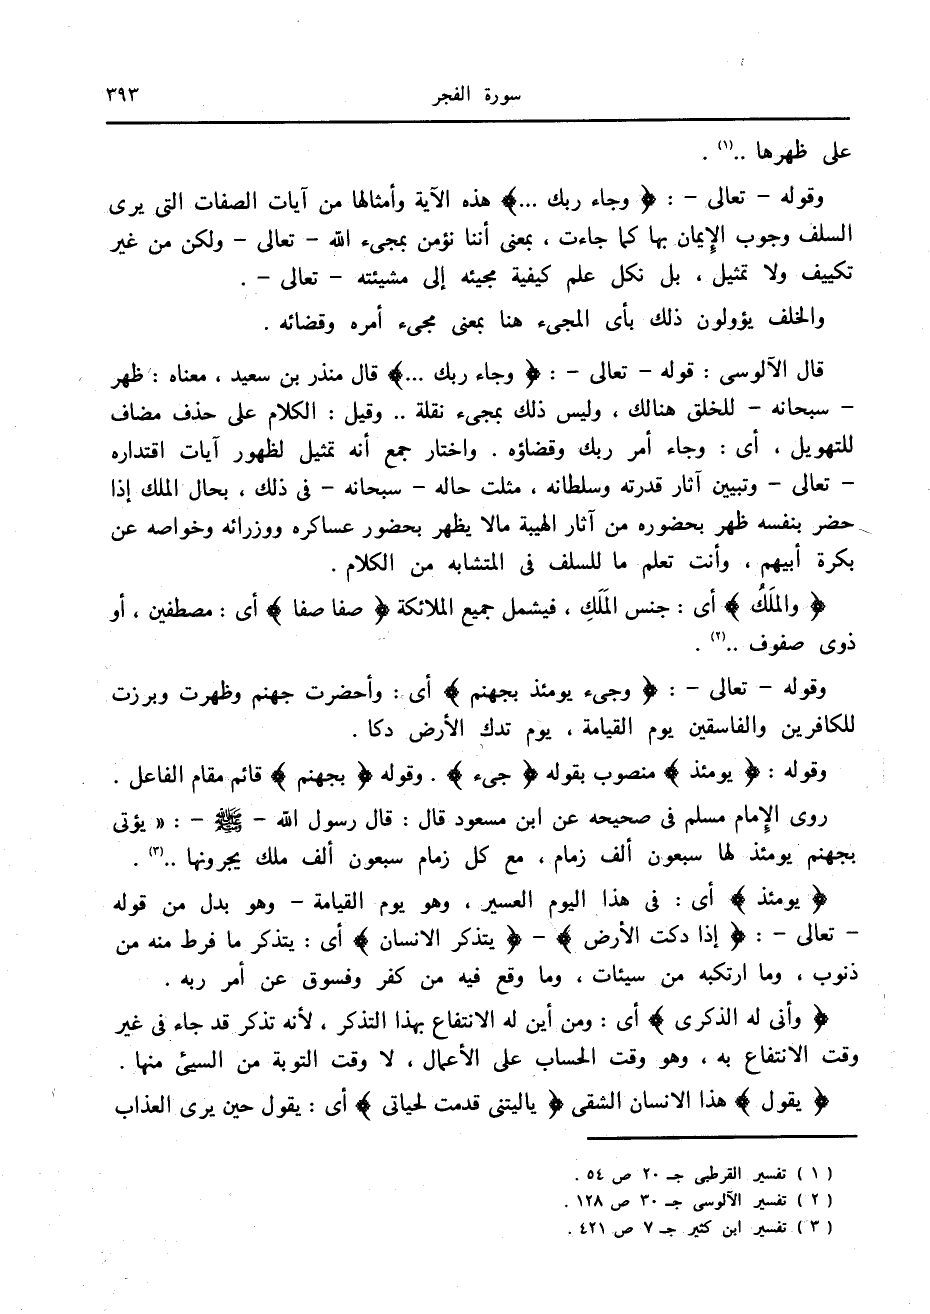 سورة الفجر ٣٩٣
على ظهرها ..(١) .
وقوله – تعالى – : ﴿ وجاء ربك ...﴾ هذه الآية وأمثالها من آيات الصفات التى يرى
السلف وجوب الإيمان بها كما جاءت ، بمعنى أننا نؤمن بمجىء الله – تعالى – ولكن من غير
تكييف ولا تمثيل ، بل نكل علم كيفية مجيئه إلى مشيئته – تعالى – .
والخلف يؤولون ذلك بأى المجىء هنا بمعنى مجىء أمره وقضائه .
قال الآلوسى : قوله – تعالى – : ﴿ وجاء ربك ...﴾ قال منذر بن سعيد ، معناه : ظهر
– سبحانه – للخلق هنالك ، وليس ذلك بمجىء نقلة .. وقيل : الكلام على حذف مضاف
للتهويل ، أى : وجاء أمر ربك وقضاؤه . واختار جمع أنه تمثيل لظهور آيات اقتداره
– تعالى – وتبيين آثار قدرته وسلطانه ، مثلت حاله – سبحانه – فى ذلك ، بحال الملك إذا
حضر بنفسه ظهر بحضوره من آثار الهيبة مالا يظهر بحضور عساكره ووزرائه وخواصه عن
بكرة أبيهم ، وأنت تعلم ما للسلف فى المتشابه من الكلام .
﴿ والمَلَكُ ﴾ أى : جنس المَلَكِ ، فيشمل جميع الملائكة ﴿ صفا صفا ﴾ أى : مصطفين ، أو
ذوى صفوف ..(٢) .
وقوله – تعالى – : ﴿ وجىء يومئذ بجهنم ﴾ أى : وأحضرت جهنم وظهرت وبرزت
للكافرين والفاسقين يوم القيامة ، يوم تدك الأرض دكا .
وقوله : ﴿ يومئذ ﴾ منصوب بقوله ﴿ جىء ﴾ . وقوله ﴿ بجهنم ﴾ قائم مقام الفاعل .
روى الإمام مسلم فى صحيحه عن ابن مسعود قال : قال رسول الله – ﷺ – : « يؤتى
بجهنم يومئذ لها سبعون ألف زمام ، مع كل زمام سبعون ألف ملك يجرونها ..(٣) .
﴿ يومئذ ﴾ أى : فى هذا اليوم العسير ، وهو يوم القيامة – وهو بدل من قوله
– تعالى – : ﴿ إذا دكت الأرض ﴾ – ﴿ يتذكر الانسان ﴾ أى : يتذكر ما فرط منه من
ذنوب ، وما ارتكبه من سيئات ، وما وقع فيه من كفر وفسوق عن أمر ربه .
﴿ وأنى له الذكرى ﴾ أى : ومن أين له الانتفاع بهذا التذكر ، لأنه تذكر قد جاء فى غير
وقت الانتفاع به ، وهو وقت الحساب على الأعمال ، لا وقت التوبة من السيئ منها .
﴿ يقول ﴾ هذا الانسان الشقى ﴿ ياليتنى قدمت لحياتى ﴾ أى : يقول حين يرى العذاب
( ١ ) تفسير القرطبى جـ ٢٠ ص ٥٤ .
( ٢ ) تفسير الآلوسى جـ ٣٠ ص ١٢٨ .
( ٣ ) تفسير ابن كثير جـ ٧ ص ٤٢١ .